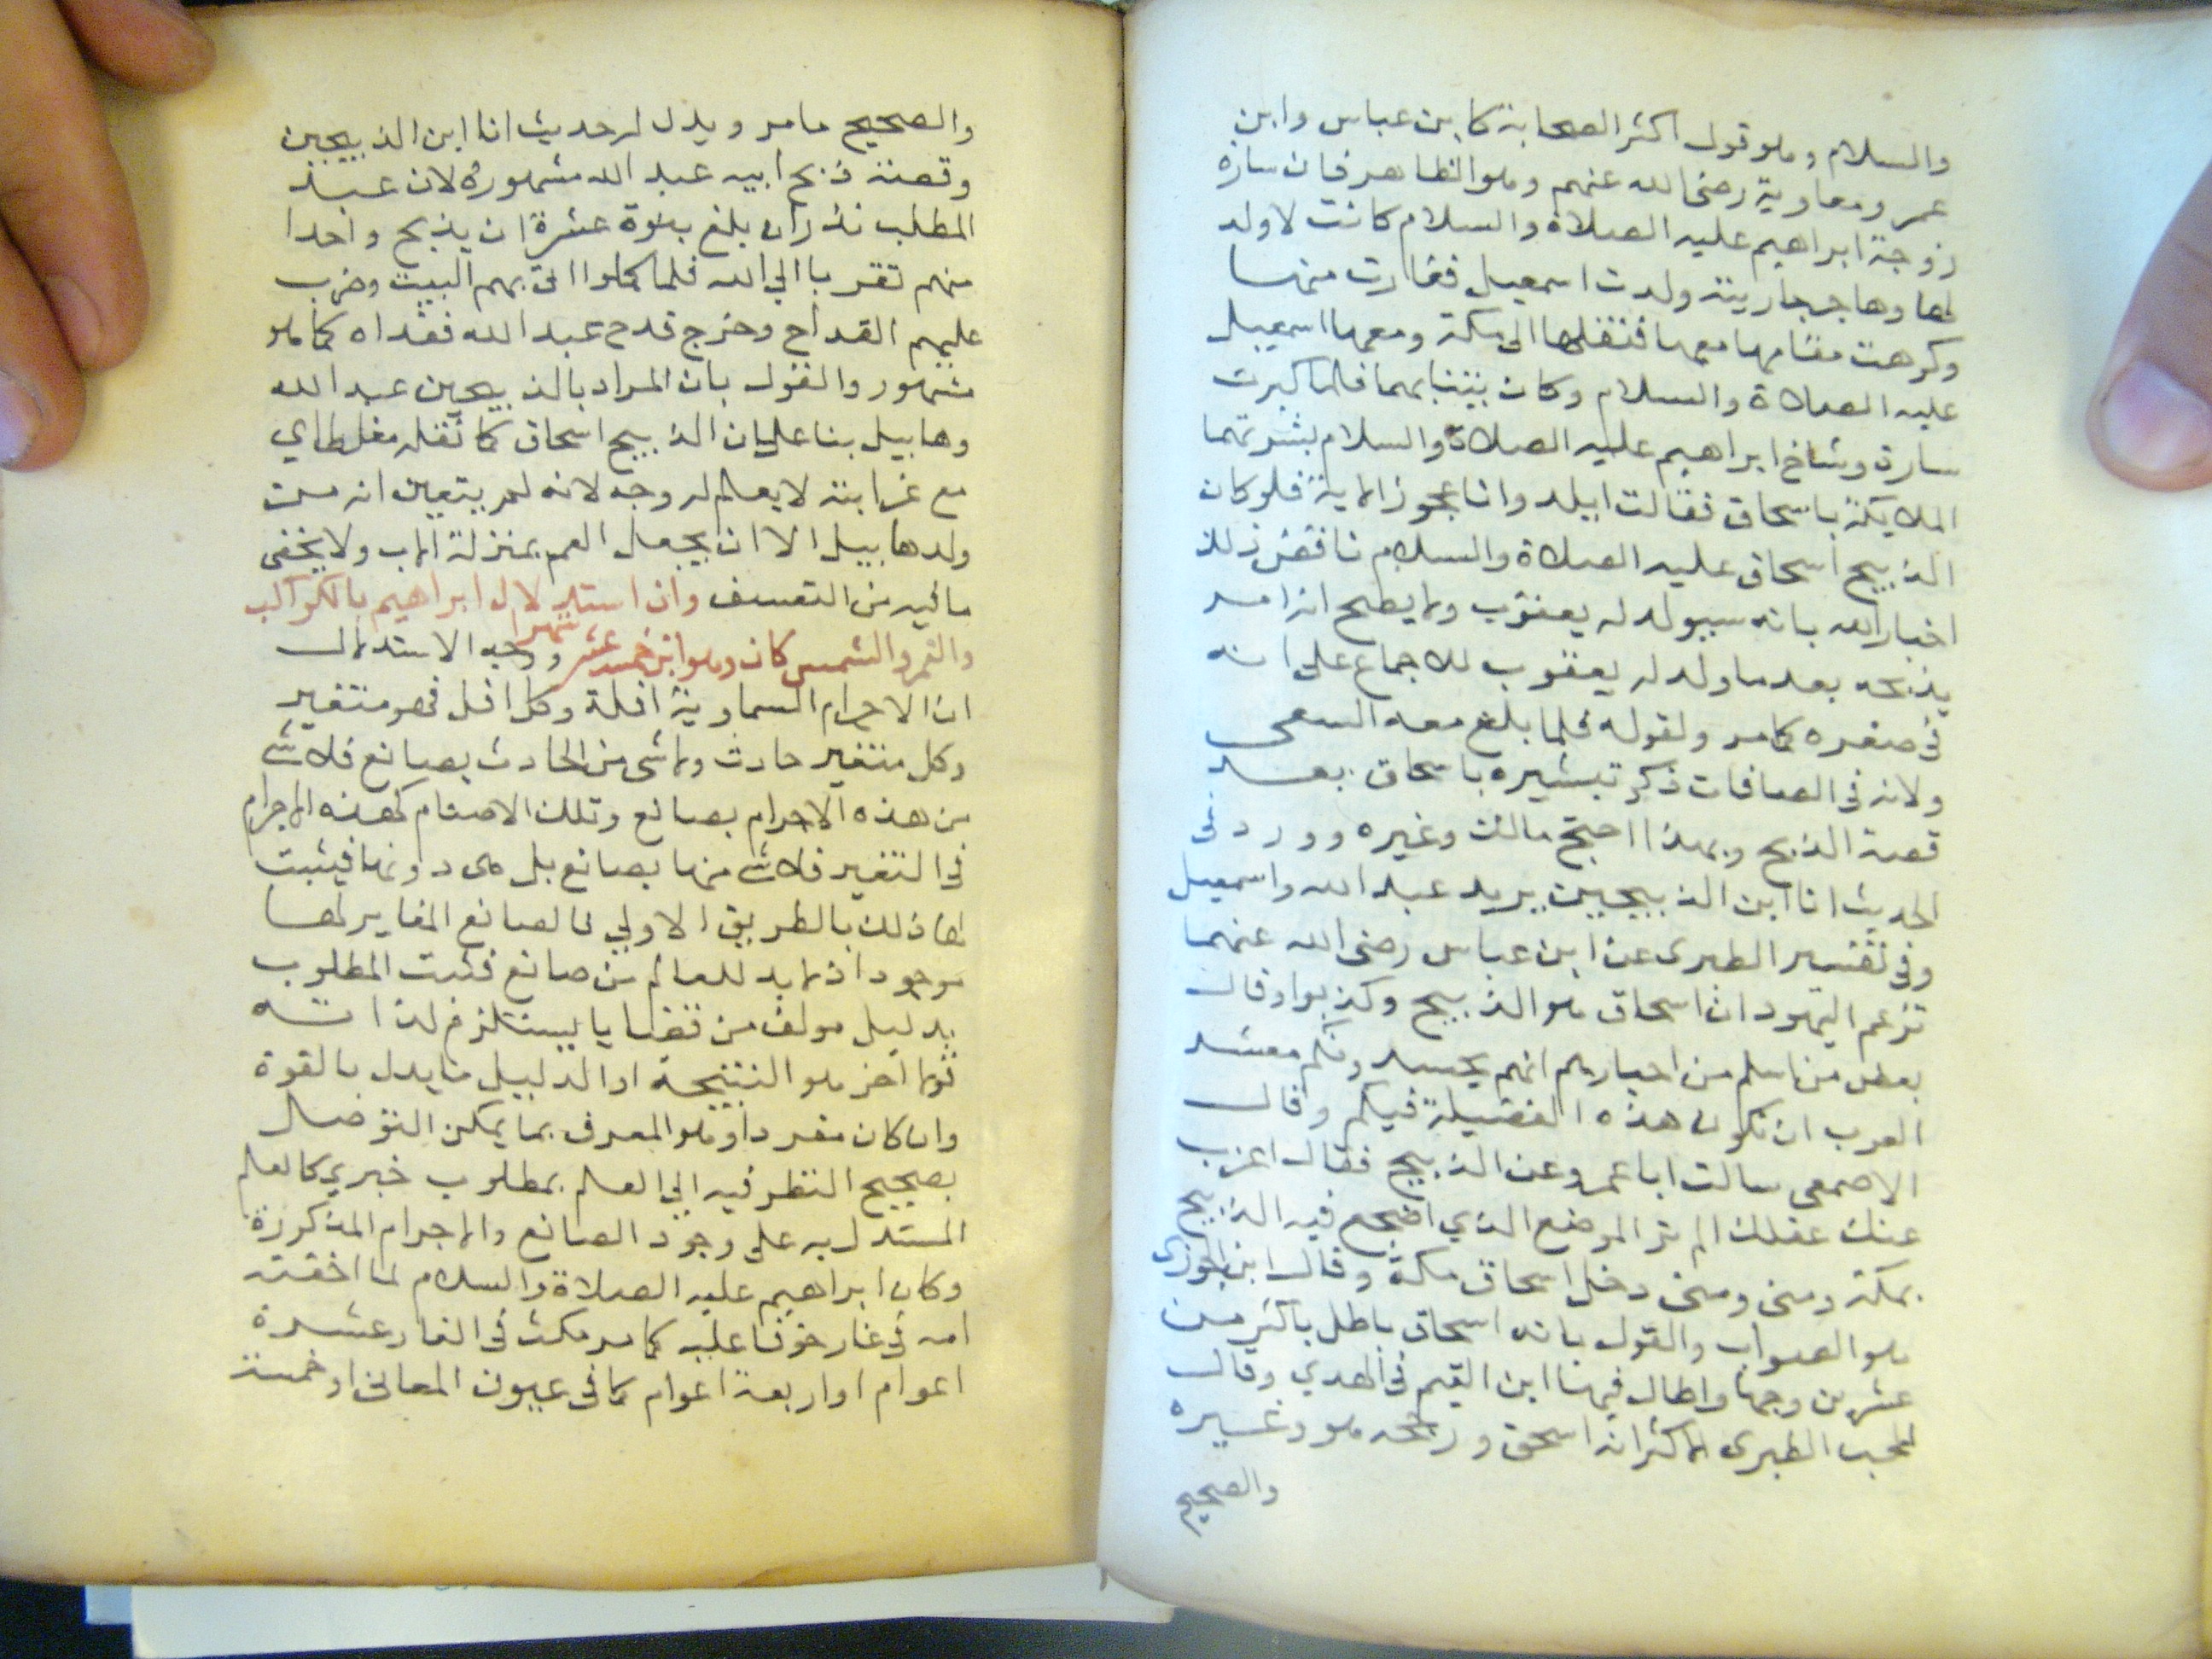 والسلام وهو قول اكثر الصحابة كابن عباس وابن
عمر ومعاوية رضى الله عنهم وهو الظاهر فان ساره
زوجة ابراهيم عليه الصلاة والسلام كانت لا ولد
لها وهاجر جاريته ولدت اسمعيل فغارت منها
وكرهت مقامها معها فنقلها الى مكة ومعها اسمعيل
عليه الصلاة والسلام وكان بينابهما فلما كبرت
سارة وشاخ ابراهيم عليه الصلاة والسلام بشرتهما
الملايكة باسحاق فقالت اىلد وانا عجوز الاية فلو كان
الذبيح اسحاق عليه الصلاة والسلام ناقض ذلك
اخبار الله بانه سيولد له يعقوب ولا يصح انه امر
بذبحه بعد ما ولد له يعقوب للاجماع على انه
في صغره كما مر ولقوله فلما بلغ معه السعى
ولانه في الصافات ذكر تبشيره باسحاق بعد
قصة الذبح وبهذا احتج مالك وغيره وورد في
الحديث انا ابن الذبيحين يريد عبد الله واسمعيل
وفي تفسير الطبرى عن ابن عباس رضى الله عنهما
تزعم اليهود ان اسحاق هو الذبيح وكذبوا وقال
بعض من اسلم من احبارهم انهم يحسدونكم معشر
العرب ان تكون هذه الفضيلة فيكم وقال
الاصمعى سالت ابا عمرو عن الذبيح فقال اعزب
عنك عقلك الم تر الموضع الذي اضجع فيه الذبيح
بمكة ومنى ومتى دخل اسحاق مكة وقال ابن الجوزى
هو الصواب والقول بانه اسحاق باطل باكثر من
عشرين وجها واطال فيها ابن القيم في الهدي وقال
المحب الطبرى الاكثر انه اسحق ورجحه هو وغيره
والصحيح
والصحيح ما مر ويدل له حديث انا ابن الذبيحين
وقصة ذبح ابيه عبد الله مشهورة لان عبد
المطلب نذر ان بلغ بنوة عشرة ان يذبح واحدا
منهم تقربا الي الله فلما كملوا اتى بهم البيت وضرب
عليهم القداح وخرج قدح عبد الله ففداه كما هو
مشهور والقول بان المراد بالذبيحين عبد الله
وهابيل بنا على ان الذبيح اسحاق كما نقله مغلطاي
مع غرابته لا يعلم له وجه لانه لم يتعين انه من
ولد هابيل الا ان يجعل العم بمنزلة الاب ولا يخفى
ما فيه من التعسف وان استدلال ابراهيم بالكواكب
والقمر والشمس كان وهو ابن خمسة عشر شهرا ووجه الاستدلال
ان الاجرام السماوية افلة وكل افل فهو متغير
وكل متغير حادث ولا شى من الحادث بصانع فلا شى
من هذه الاجرام بصانع وتلك الاصنام كهذه الاجرام
في التغير فلا شى منها بصانع بل هى دونها فيثبت
لها ذلك بالطريق الاولي فالصانع المغاير لها
موجود اذ لا بد للعالم من صانع فثبت المطلوب
بدليل مولف من قضايا يستلزم لذاته
قولا اخر هو النتيجة او الدليل ما يدل بالقوة
وان كان مفردا وهو المعرف بما يمكن التوصل
بصحيح النظر فيه الي العلم بمطلوب خبري كالعالم
المستدل به على وجود الصانع والاجرام المذكورة
وكان ابراهيم عليه الصلاة والسلام لما اخفته
امه في غار خوفا عليه كما مر مكث في الغار عشرة
اعوام او اربعة اعوام كما في عيون المعانى او خمسة